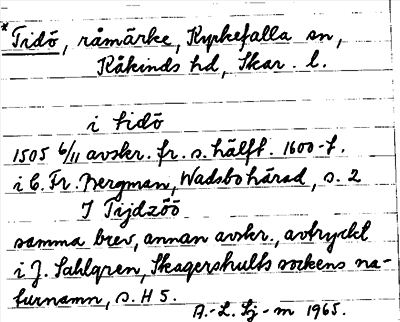 *Tidö, råmärke, Kyrkefalla sn,
Kåkinds hd, Skar. l.
i tidö
1505 6/11 avskr. fr. s. hälft. 1600-t.
i C. Fr. Bergman, Wadsbohärad, s. 2
I Tijdzöö
samma brev, annan avskr., avtryckt
i J. Sahlgren, Skagershults sockens na-
turnamn, s. H 5.
A.-L. Lj-m 1965.